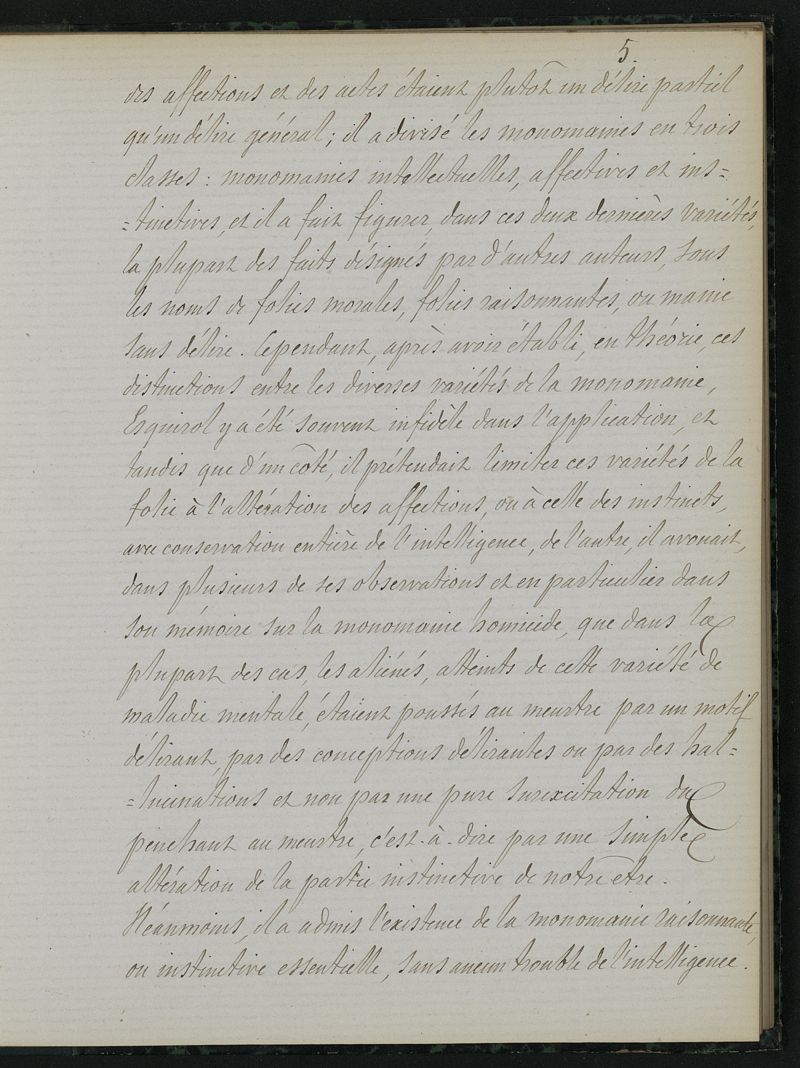 5.
des affections et des actes étaient plutôt un délire partiel
qu'un délire général; il a divisé les monomanies en trois
classes: monomanies intellectuelles, affectives et ins=
=tinctives, et il a fait figurer, dans ces deux dernières variétés,
la plupart des faits, désignés par d'autres auteurs, sous
les noms de folies morales, folies raisonnantes, ou manie
sans délire. Cependant, après avoir établi, en théorie, ces
distinctions entre les diverses variétés de la monomanie,
Esquirol y a été souvent infidèle dans l'application, et
tandis que d'un côté, il prétendait limiter ces variétés de la
folie à l'altération des affections, ou à celle des instincts,
avec conservation entière de l'intelligence, de l'autre, il avouait,
dans plusieurs de ses observations et en particulier dans
son mémoire sur la monomanie homicide, que dans la
plupart des cas, les aliénés, atteints de cette variété de
maladie mentale, étaient poussés au meurtre par un motif
délirant, par des conceptions délirantes ou par des hal=
=lucinations et non par une pure surexcitation du
penchant au meurtre, c'est-à-dire par une simple
altération de la partie instinctive de notre être.
Néanmoins, il a admis l'existence de la monomanie raisonnante,
ou instinctive essentielle, sans aucun trouble de l'intelligence.